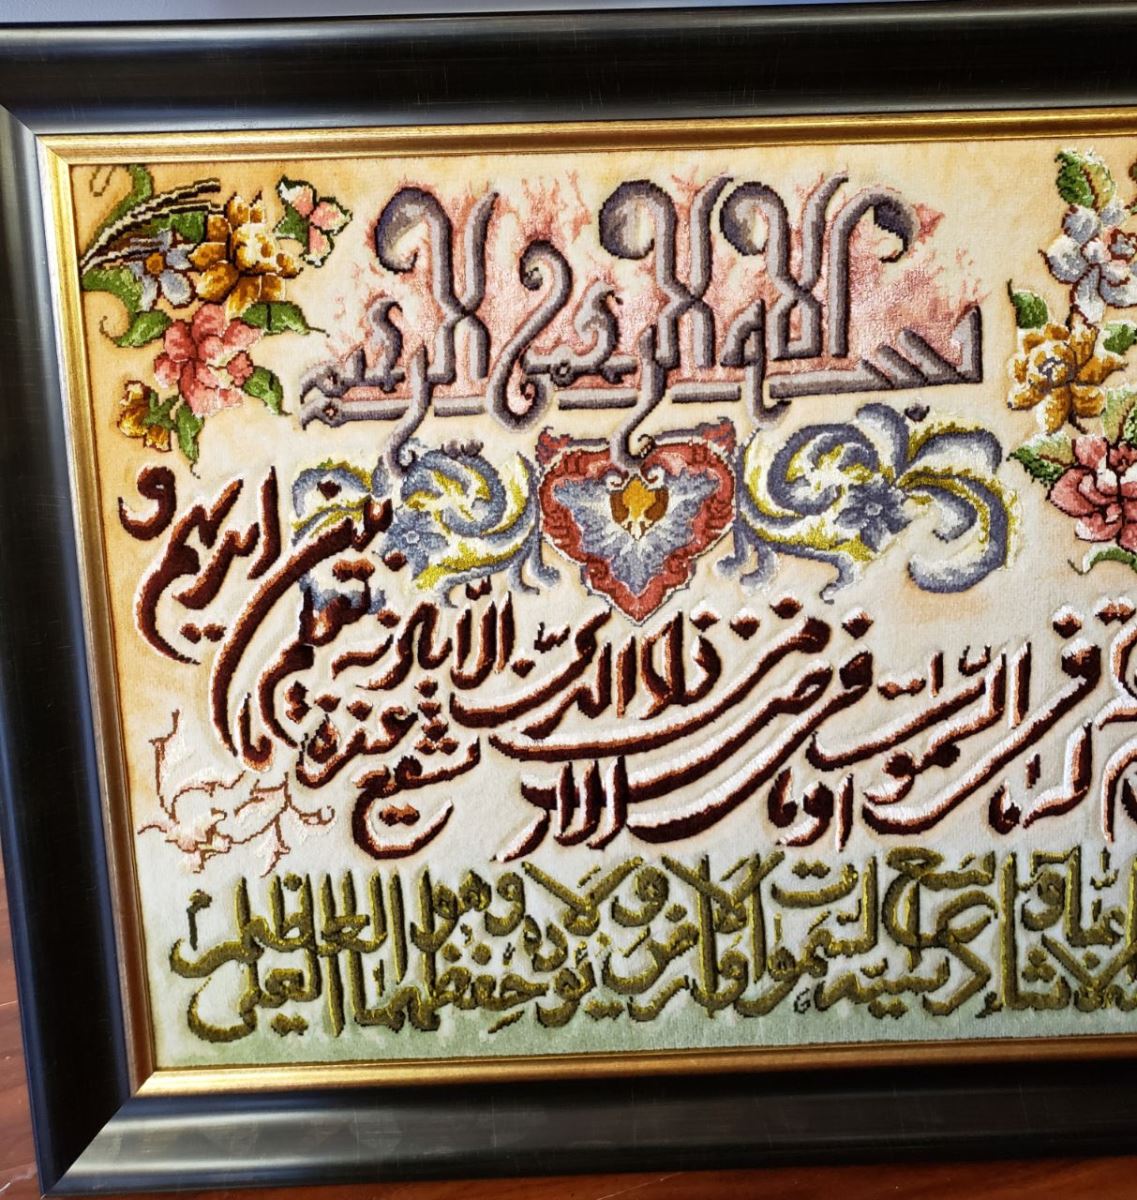 بسم الله الرحمن الرحيم
له ما فى السموات وما فى الارض من ذا الذى يشفع عنده الا باذنه يعلم ما بين ايديهم و
شاء وسع كرسيه السموات والارض ولا يؤده حفظهما وهو العلى العظيم